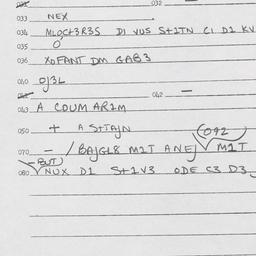 032
033 NEX
034 MLOCT3R3S DI VUS S+1TN CI D1 KV
035 O
036 XOFANT DM GAB3
040 OJ3L
042 —
043 A COUM AR1M
050 + A S+TAJN (092)
070 - / BAJGL8 M1T ANEJ M1T
(BUT)
080 NUX D1 S+1V3 ODE C3 D3